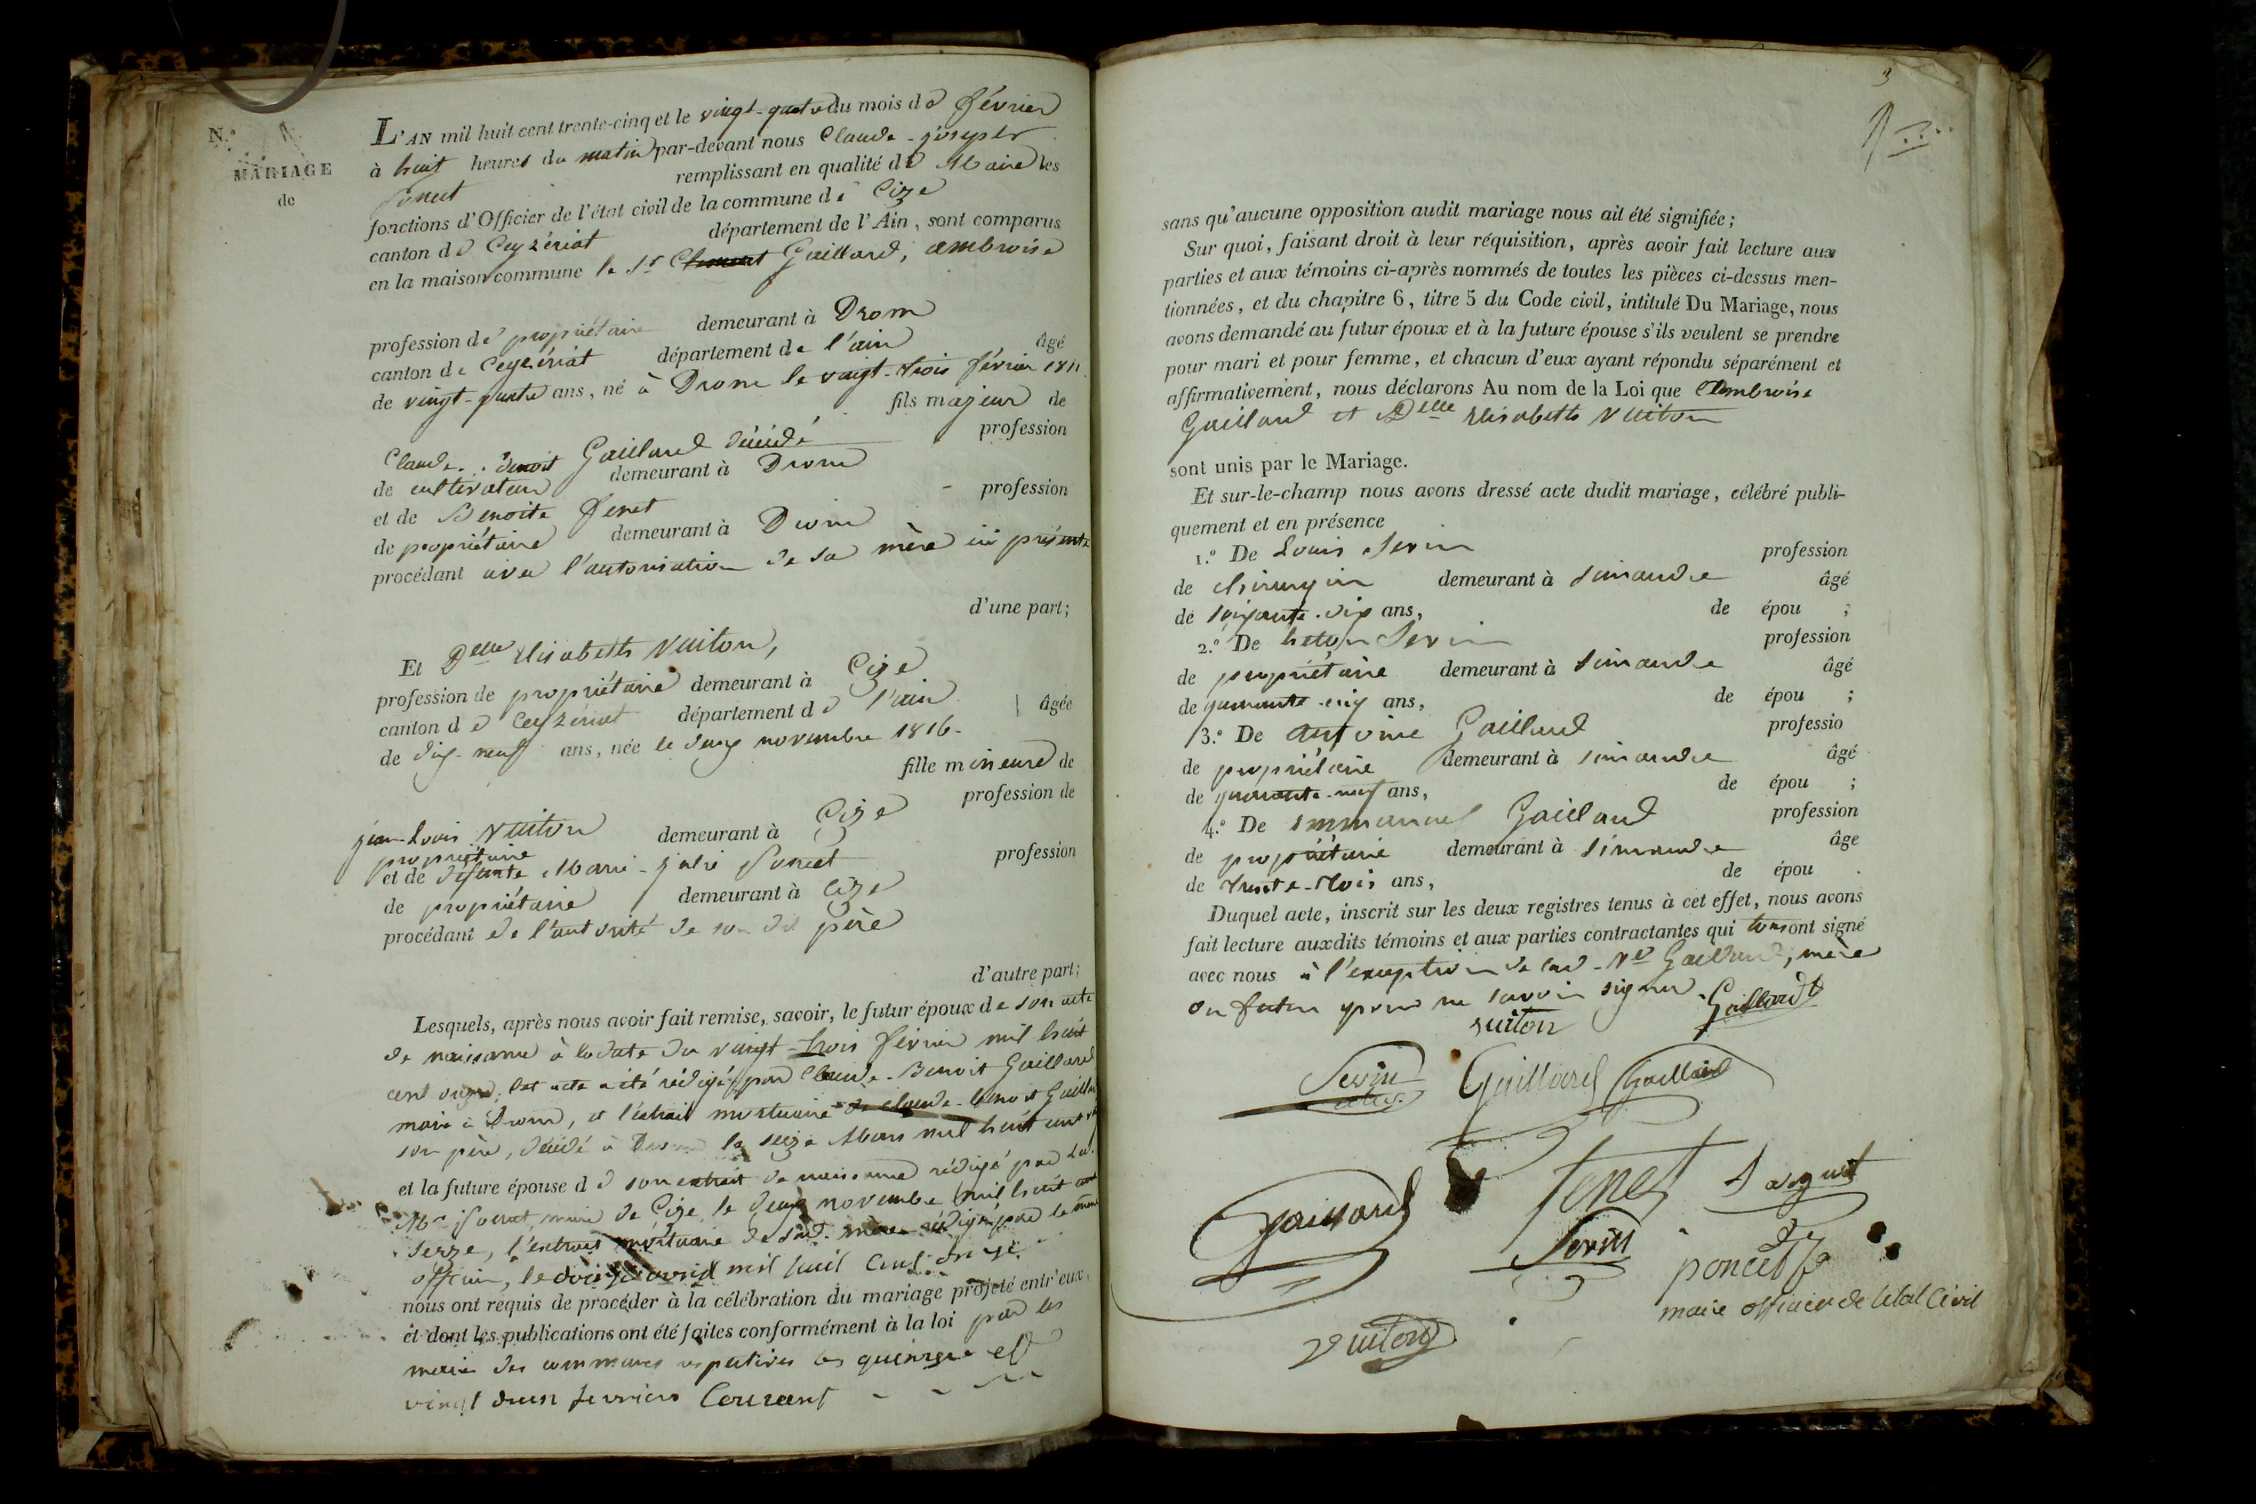 N.º
MARIAGE
de
L'AN mil huit cent trente-cinq et le vingt-quatre du mois de février
à huit heures du matin par-devant nous Claude-joseph
remplissant en qualité de Maire les
fonctions d'Officier de l'état civil de la commune de Cize
canton de Ceyzériat département de l'Ain, sont comparus
en la maison commune le Sr Gaillard, ambroise
profession de propriétaire demeurant à Drom
canton de Ceyzériat département de l'ain âgé
de vingt-quatre ans, né à Drom le vingt-trois février 1811
fils majeur de
Claude-Benoit Gaillard décédé profession
de cultivateur demeurant à Drom
et de Benoite fenet profession
de propriétaire demeurant à Drom
procédant avec l'autorisation de sa mère ici présente
d'une part;
Et Delle Elisabeth Vuiton,
profession de propriétaire demeurant à Cize
canton de Ceyzériat département de l'ain âgée
de dix-neuf ans, née le deux novembre 1816.
fille mineure de
jean-Louis Vuiton demeurant à Cize profession de
propriétaire
et de défunte Marie-julie profession
de propriétaire demeurant à Cize
procédant de l'autorité de son dit père
d'autre part;
Lesquels, après nous avoir fait remise, savoir, le futur époux de son acte
de naissance à la date du vingt-trois février mil huit
cent onze, cet acte a été rédigé par Claude-Benoit Gaillard
maire à Drom, et l'extrait mortuaire de claude-benoit Gaillard
son père, décédé à Drom le seize Mars mil huit cent
et la future épouse de son extrait de naissance rédigé par
Mr maire de Cize le deux novembre mil huit cent
seize, l'extrait mortuaire de sad. mère rédigé par le même
officier, le avril mil huit Cent
nous ont requis de procéder à la célébration du mariage projeté entr'eux,
et dont les publications ont été faites conformément à la loi par les
maires des communes respectives les quinze et
vingt deux fevrier Courant
3
sans qu'aucune opposition audit mariage nous ait été signifiée;
Sur quoi, faisant droit à leur réquisition, après avoir fait lecture aux
parties et aux témoins ci-après nommés de toutes les pièces ci-dessus men-
tionnées, et du chapitre 6, titre 5 du Code civil, intitulé Du Mariage, nous
avons demandé au futur époux et à la future épouse s'ils veulent se prendre
pour mari et pour femme, et chacun d'eux ayant répondu séparément et
affirmativement, nous déclarons Au nom de la Loi que Ambroise
Gaillard et Delle Elisabeth Vuiton
sont unis par le Mariage.
Et sur-le-champ nous avons dressé acte dudit mariage, célébré publi-
quement et en présence
1.º De Louis Servin profession
de chirurgien demeurant à Simandre âgé
de soixante-dix ans, de épou ;
2.º De Servin profession
de propriétaire demeurant à Simandre âgé
de quarante-cinq ans, de épou ;
3.º De antoine Gaillard professio
de propriétaire demeurant à Simandre âgé
de quarante-neuf ans, de épou ;
4.º De Emmanuel Gaillard profession
de propriétaire demeurant à Simandre âge
de trente-trois ans, de épou .
Duquel acte, inscrit sur les deux registres tenus à cet effet, nous avons
fait lecture auxdits témoins et aux parties contractantes qui tous ont signé
avec nous à l'exception de lad. Ve Gaillard, mère
du futur pour ne savoir signer
vuiton Gaillardt
Servin Gaillard Gaillard
Gaillard fenet
Servin poncet
maire officier de letat Civil
Vuiton